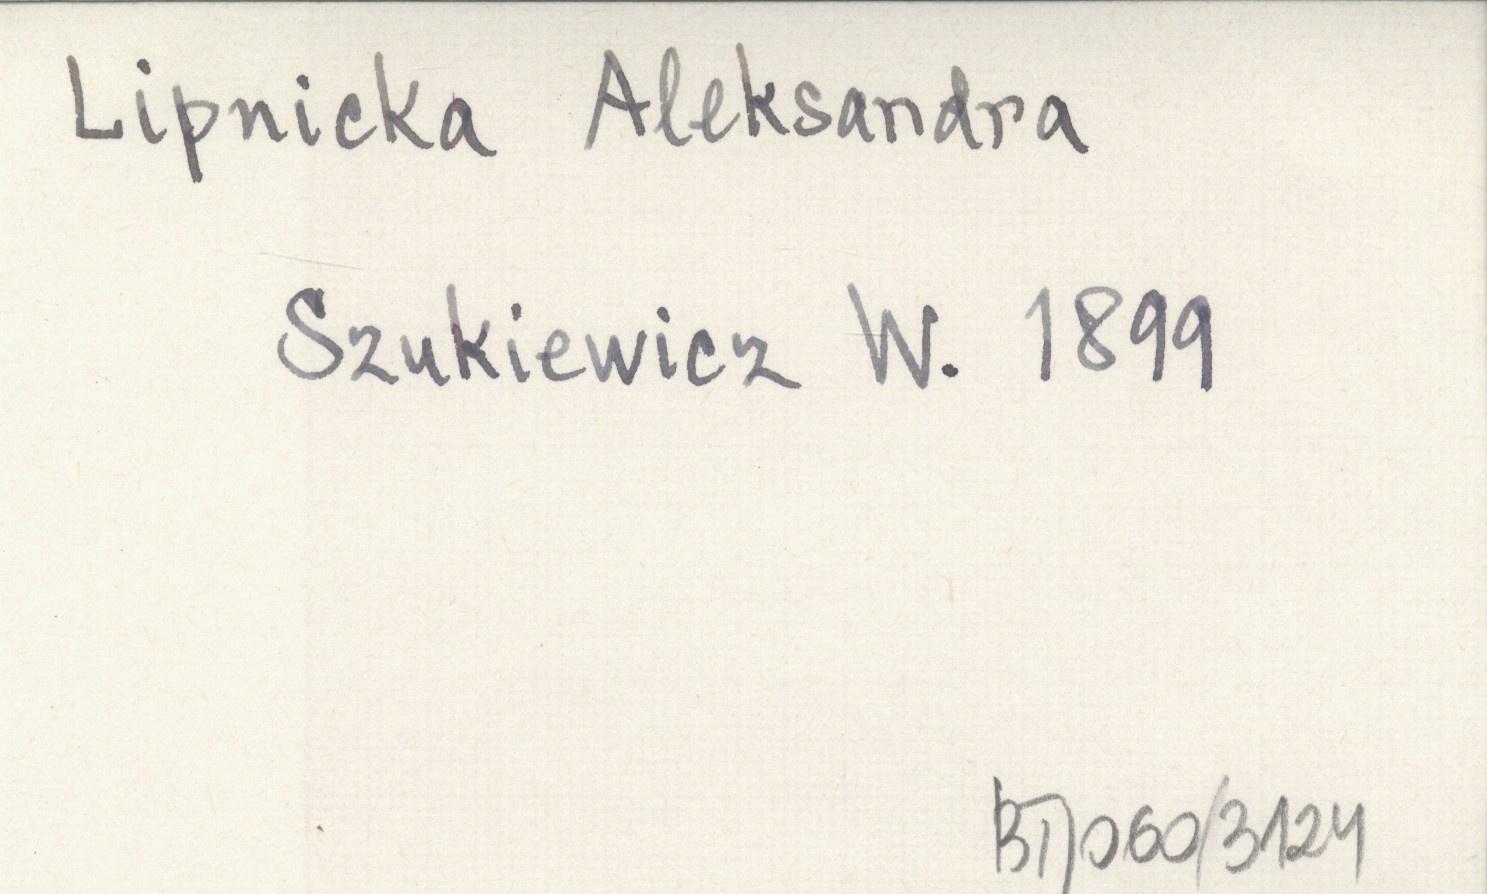 Lipnicka Aleksandra
Szukiewicz W. 1899
BJ)060/3124